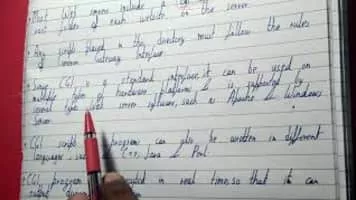 Most Web servers include a
root folder of each website on the server
Any script placed in the directory must follow the rules
of Common Gateway Interface
Since CGI is a standard interface, it can be used on
multiple types of hardware platforms & is supported by
several types web server software, such as Apache & Windows
Server
CGI scripts programs can also be written in different
languages such C++, Java & Perl
CGI program in real time, so that it can
output